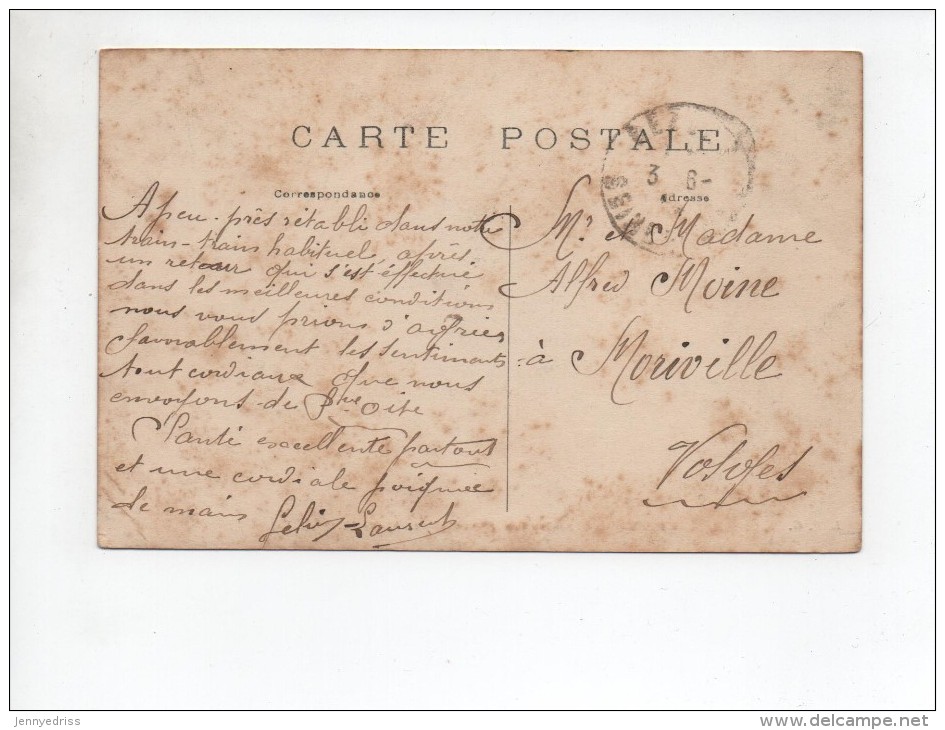 CARTE POSTALE
Correspondance
A peu-près rétabli dans notre
train-train habituel, après
un retour qui s'est éffectué
dans les meilleures conditions
nous vous prions d'agréer
favorablement les sentiments
tout cordiaux que nous
envoyons de
Santé excellente partout
et une cordiale poignée
de main
Laurent
3 6-
Adresse
Mr. et Madame
Alfred Moine
à Moriville
Vosges
jennyedriss
www.delcampe.net